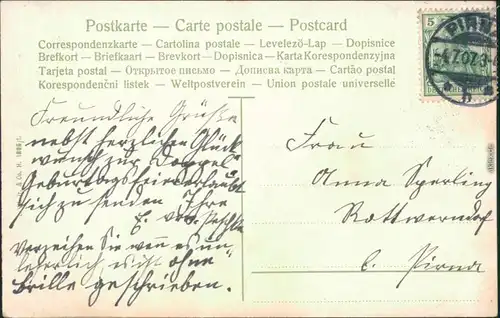 Postkarte — Carte postale — Postcard
Correspondenzkarte — Cartolina postale — Levelező-Lap — Dopisnice
Brefkort — Briefkaart — Brevkort — Dopisnica — Karta Korespondenzyjna
Tarjeta postal — Открытое письмо — Дописна карта — Cartão postal
Korespondenční lístek — Weltpostverein — Union postale universelle
5
PIRNA
Freundliche Grüße
nebst herzlichen Glück
wunsch zur Doppel
Geburtagsfeier erlaubt
sich zu senden Ihre
E. von
Verzeihen Sie wenn es un
leserlich es ist ohne
Brille geschrieben.
Frau
Anna Sperling
Rottwerndorf
b. Pirna